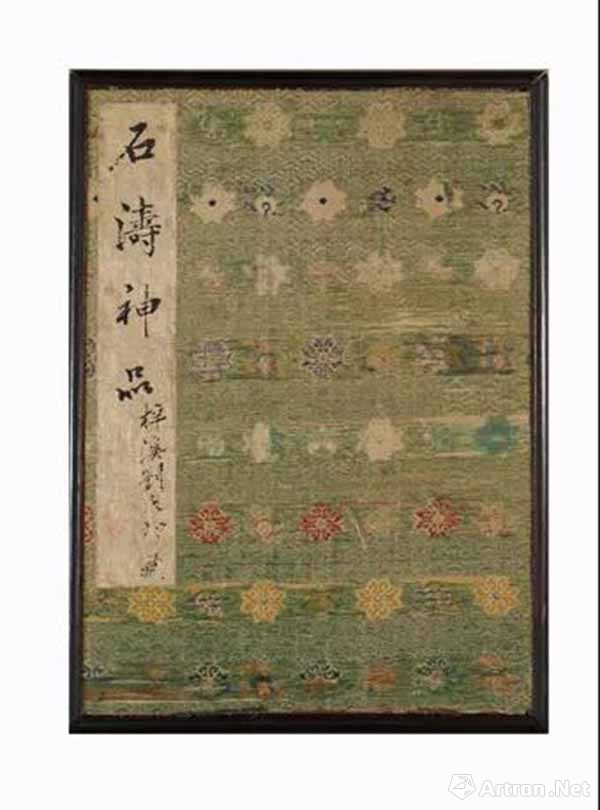 石濤神品
梓溪劉
Artron.Net